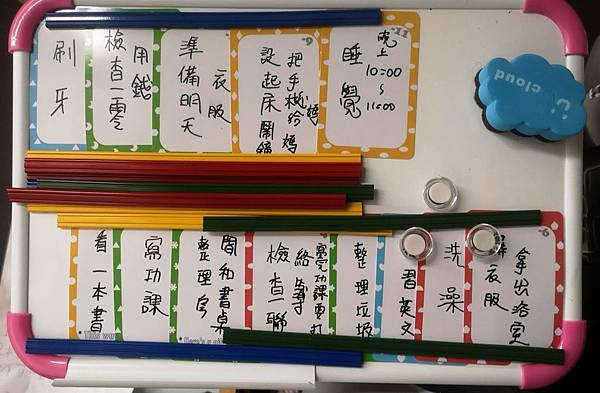 刷牙
檢查一零
用錢
準備明天
衣服
設起床鬧鐘
把手機給媽媽
-9
睡覺
晚上
10:00
~
11:00
-11
cloud
看一本書
寫功課
整理房
間和書桌
檢查一聯
絡簿
寫完功課要打
整理垃圾
習英文
洗澡
衣服
拿出浴室
-6